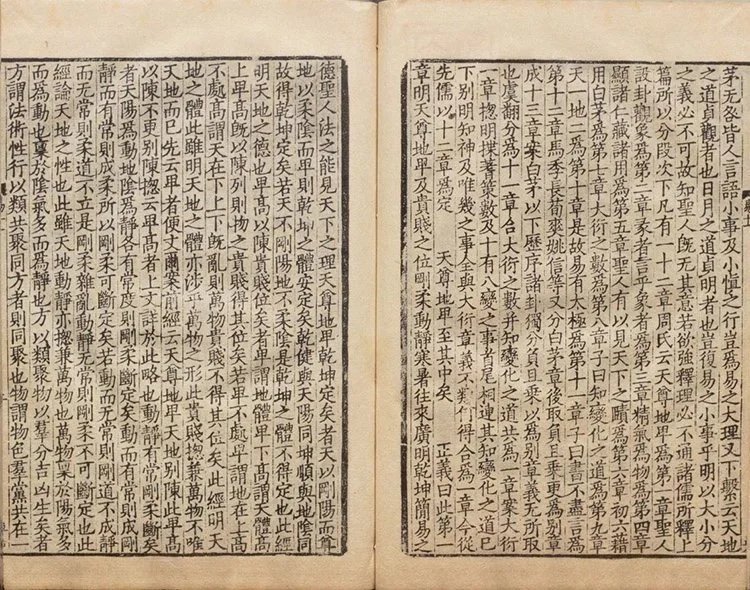 茅无咎皆人言語小事及小慎之行豈爲易之大理又下繫云天地
之道貞觀者也日月之道貞明者也豈復易之小事乎明以大小分
之義必不可故知聖人旣无其意若欲強釋理必不通諸儒所釋上
篇所以分段次下凡有一十二章周氏云天尊地卑爲第一章聖人
設卦觀象爲第二章彖者言乎象者爲第三章精氣爲物爲第四章
顯諸仁藏諸用爲第五章聖人有以見天下之賾爲第六章初六藉
用白茅爲第七章大衍之數爲第八章子曰知變化之道爲第九章
天一地二爲第十章是故易有太極爲第十一章子曰書不盡言爲
第十二章馬季長荀爽姚信等又分白茅章後取負且乘更爲別章
成十三章案白茅以下歷序諸卦獨分負且乘以爲別章義无所取
也虞翻分爲十一章合大衍之數并知變化之道共爲一章案大衍
一章揔明揲蓍策數及十有八變之事首尾相連其知變化之道已
下別明知神及唯幾之事全與大衍章義不類何得合爲一章今從
先儒以十二章爲定　天尊地卑至其中矣　正義曰此第一
章明天尊地卑及貴賤之位剛柔動靜寒暑往來廣明乾坤簡易之
德聖人法之能見天下之理天尊地卑乾坤定矣者天以剛陽而尊
地以柔陰而卑則乾坤之體安定矣乾健與天陽同坤順與地陰同
故得乾坤定矣若天不剛陽地不柔陰是乾坤之體不得定也此經
明天地之德也卑高以陳貴賤位矣者卑謂地體卑下高謂天體高
上卑高旣以陳列則物之貴賤得其位矣若卑不處卑謂地在上高
不處高謂天在下上下旣亂則萬物貴賤不得其位矣此經明天
地之體此雖明天地之體亦涉乎萬物之形此貴賤揔兼萬物不唯
天地而已先云卑者便文爾案前經云天尊地卑天地別陳此卑高
以陳不更別陳揔云卑高者上文詳於此略也動靜有常剛柔斷矣
者天陽爲動地陰爲靜各有常度則剛柔斷定矣動而有常則成剛
靜而有常則成柔所以剛柔可斷定矣若動而无常則剛道不成靜
而无常則柔道不立是剛柔雜亂動靜无常則剛柔不可斷定也此
經論天地之性也此雖天地動靜亦揔兼萬物也萬物稟於陽氣多
而爲動也稟於陰氣多而爲靜也方以類聚物以羣分吉凶生矣者
方謂法術性行以類共聚同方者則同聚也物謂物色羣黨共在一